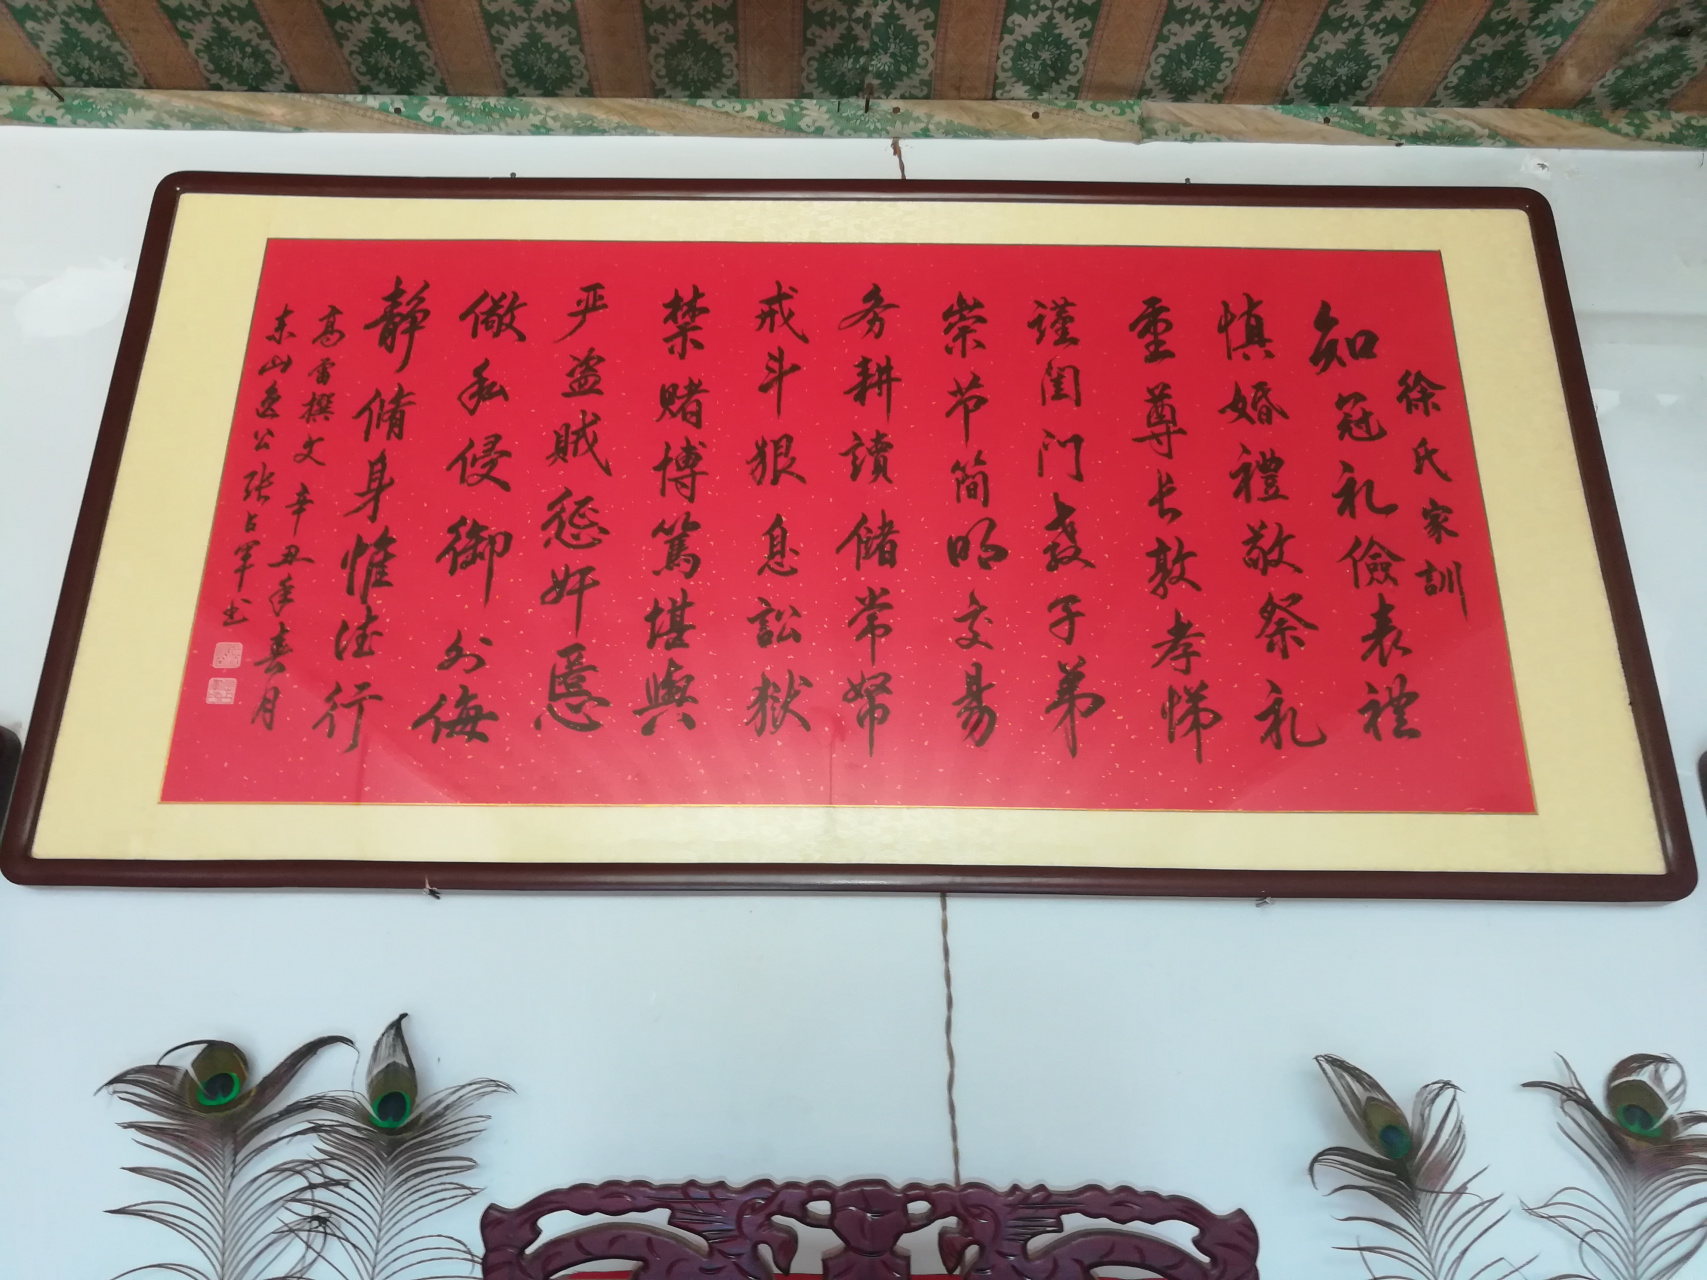 徐氏家訓
知冠礼儉表禮
慎婚禮敬祭礼
重尊长敦孝悌
谨闺门教子弟
崇节简明交易
务耕读储常帑
戒斗狠息訟獄
禁赌博篤堪輿
严盗贼惩奸慝
儆私侵御外侮
静脩身惟德行
高雷撰文 辛丑年春月
东山逸公张占军书